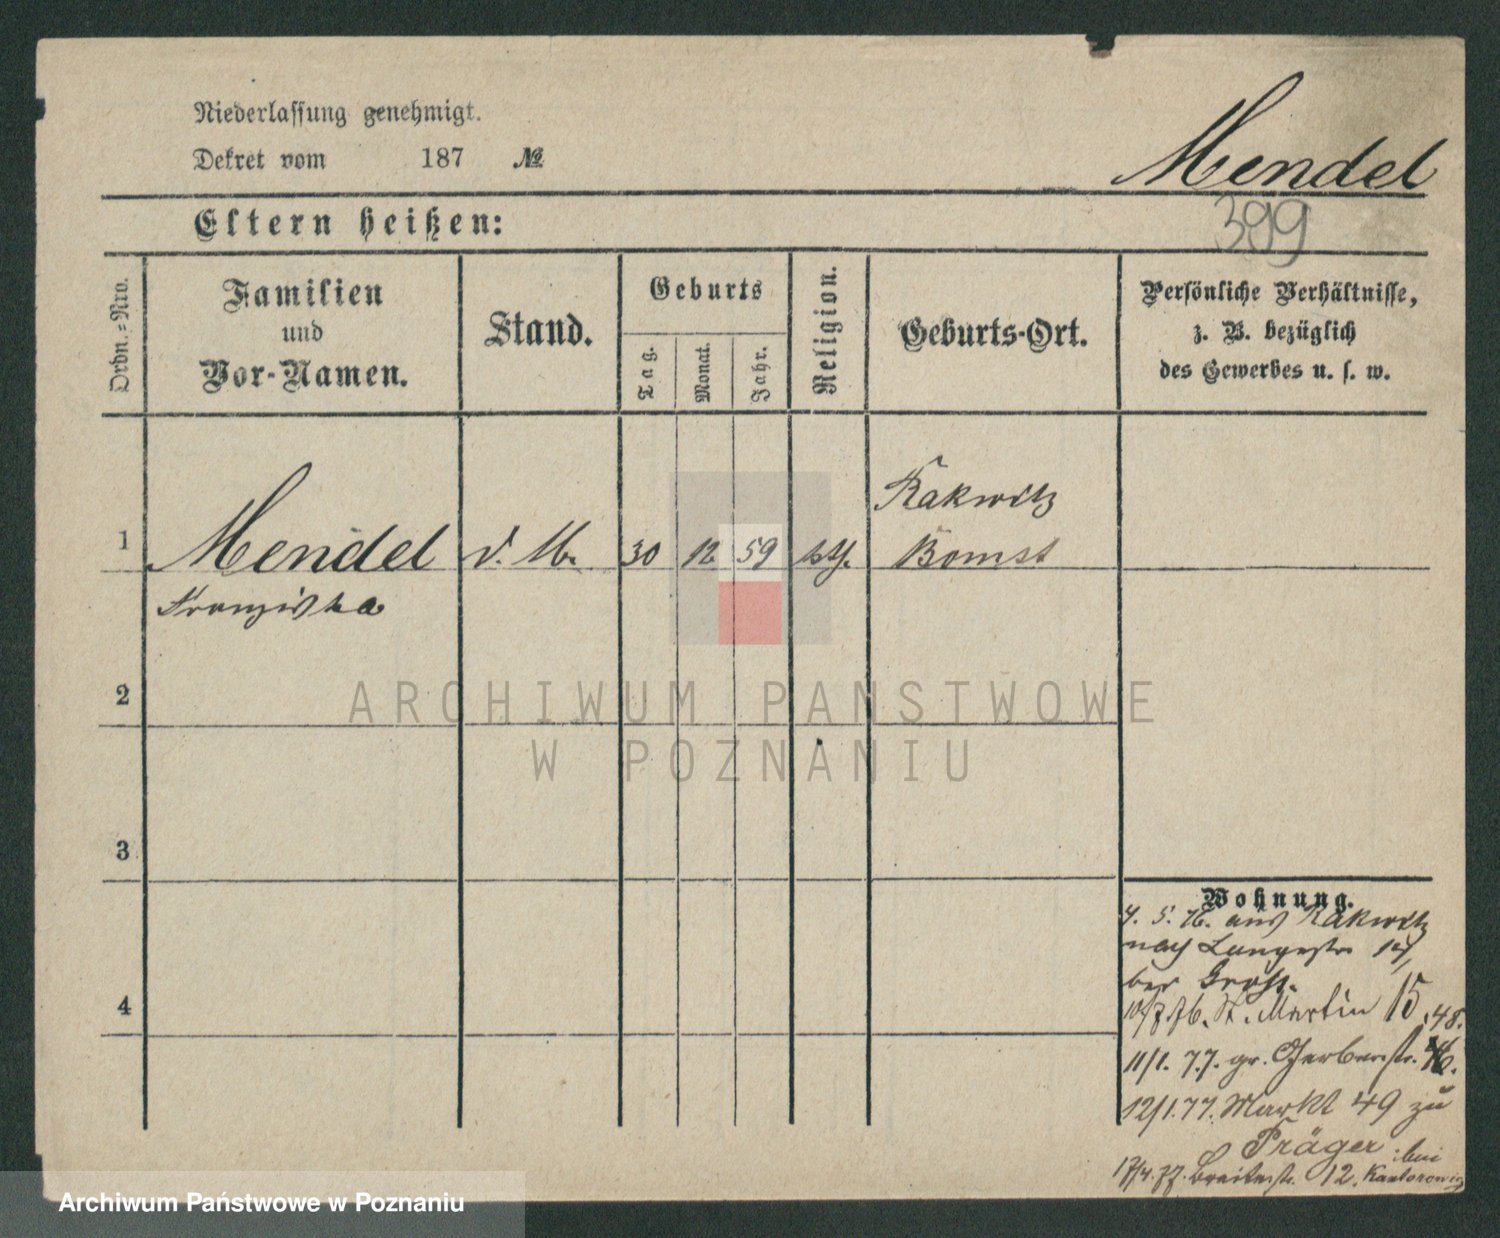 Niederlassung genehmigt.
Dekret vom 187 №
Mendel
399
Eltern heißen:
Ordn.=Nro.
Familien
und
Vor-Namen.
Stand.
Geburts
Tag.
Monat.
Jahr.
Religion.
Geburts-Ort.
Persönliche Verhältnisse,
z. B. bezüglich
des Gewerbes u. s. w.
Rakwitz
1 Mendel d. M. 30 12 59 kth. Bomst
Franziska
2
ARCHIWUM PAŃSTWOWE
W POZNANIU
3
4
Wohnung.
4. 5. 76. aus Rakwitz
nach Langestr.
bei
10/7.76. St. Martin 15
11/1. 77. gr. Gerberstr.
12/1.77. Markt 49 zu
Präger
17/4.77. Breitestr. 12. bei Kantorowicz
Archiwum Państwowe w Poznaniu